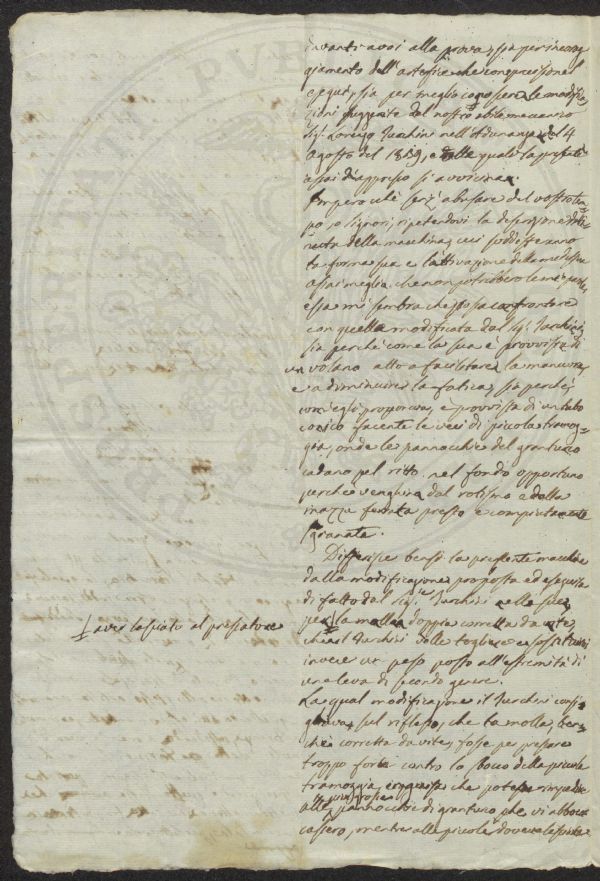 avanti a voi alla prova, sia per incorag
giamento dell'artefice che con precisione l'
eseguì, sia per meglio conoscere le modifica
zioni suggerite dal nostro abile meccanico
Sig. Lorenzo Turchini nell'Adunanza del 4
Agosto del 1839, e dalle quali la presente
assai d'appresso si avvicina.
Imperocchè senz'abusare del vostro tem
po, o Signori, ripetendovi la descrizione
della macchina, cui soddisfaranno
la forma sua e l'attivazione della medesima
assai meglio che non potrebbero le mie parole,
essa mi sembra che possa confrontare
con quella modificata dal Sig. Turchini,
sia perché come la sua è provvista di
un volano atto a facilitare la manovra
e a diminuire la fatica, sia perché,
com'egli proponeva, è provvista di un tubo
conico facente le veci di piccola tramog=
gia, onde le pannocchie del granturco
cadano pel ritto nel fondo opportuno
perché venghino dal rotismo e dalla
mazza ferrata presto e compiutamente
sgranate.
Differisce bensì la presente macchina
dalla modificazione proposta ed eseguita
di fatto dal Sig. Turchini nelle sue,
per la molla doppia corretta da vite,
che il Turchini volle togliere e sostituirvi
invece un peso posto all'estremità di
una leva di secondo genere.
aver lasciato al pressatore
La qual modificazione il Turchini consi
gliava, sul riflesso, che la molla, ben=
chè corretta da vite, fosse per pressare
troppo forte contro la bocca della piccola
tramoggia, che potesse impedire
alle più grosse pannocchie di granturco che vi abboc
cassero, mentre alle piccole dovea lasciare